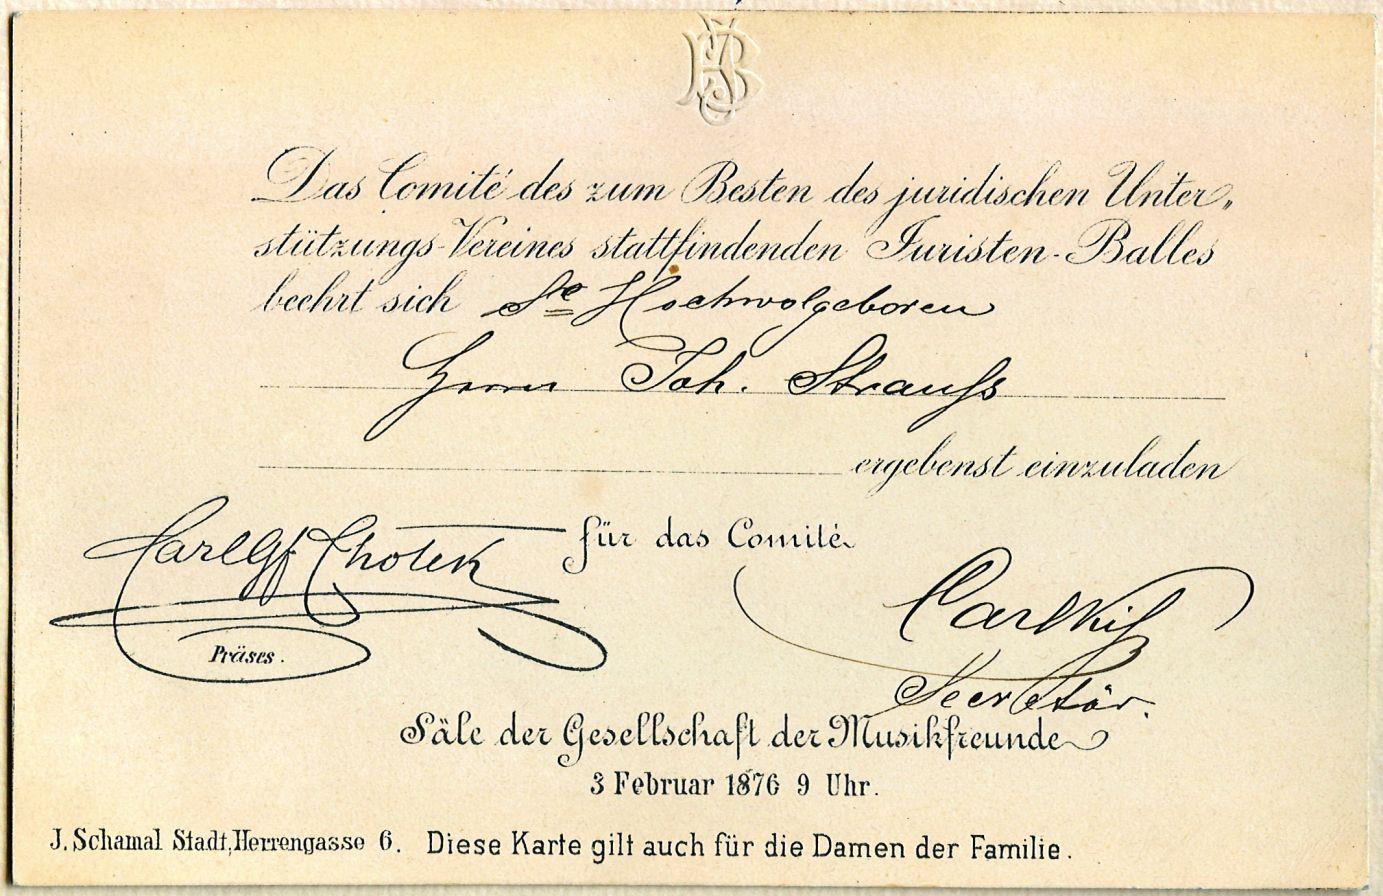 Das Comité des zum Besten des juridischen Unter„
stützungs-Vereines stattfindenden Juristen-Balles
beehrt sich Se Hochwolgeboren
Herrn Joh. Strauss
ergebenst einzuladen
für das Comité
Carl Gf Chotek
Präses.
Carl
Secretär.
Säle der Gesellschaft der Musikfreunde
3 Februar 1876 9 Uhr.
J. Schamal Stadt, Herrengasse 6. Diese Karte gilt auch für die Damen der Familie.